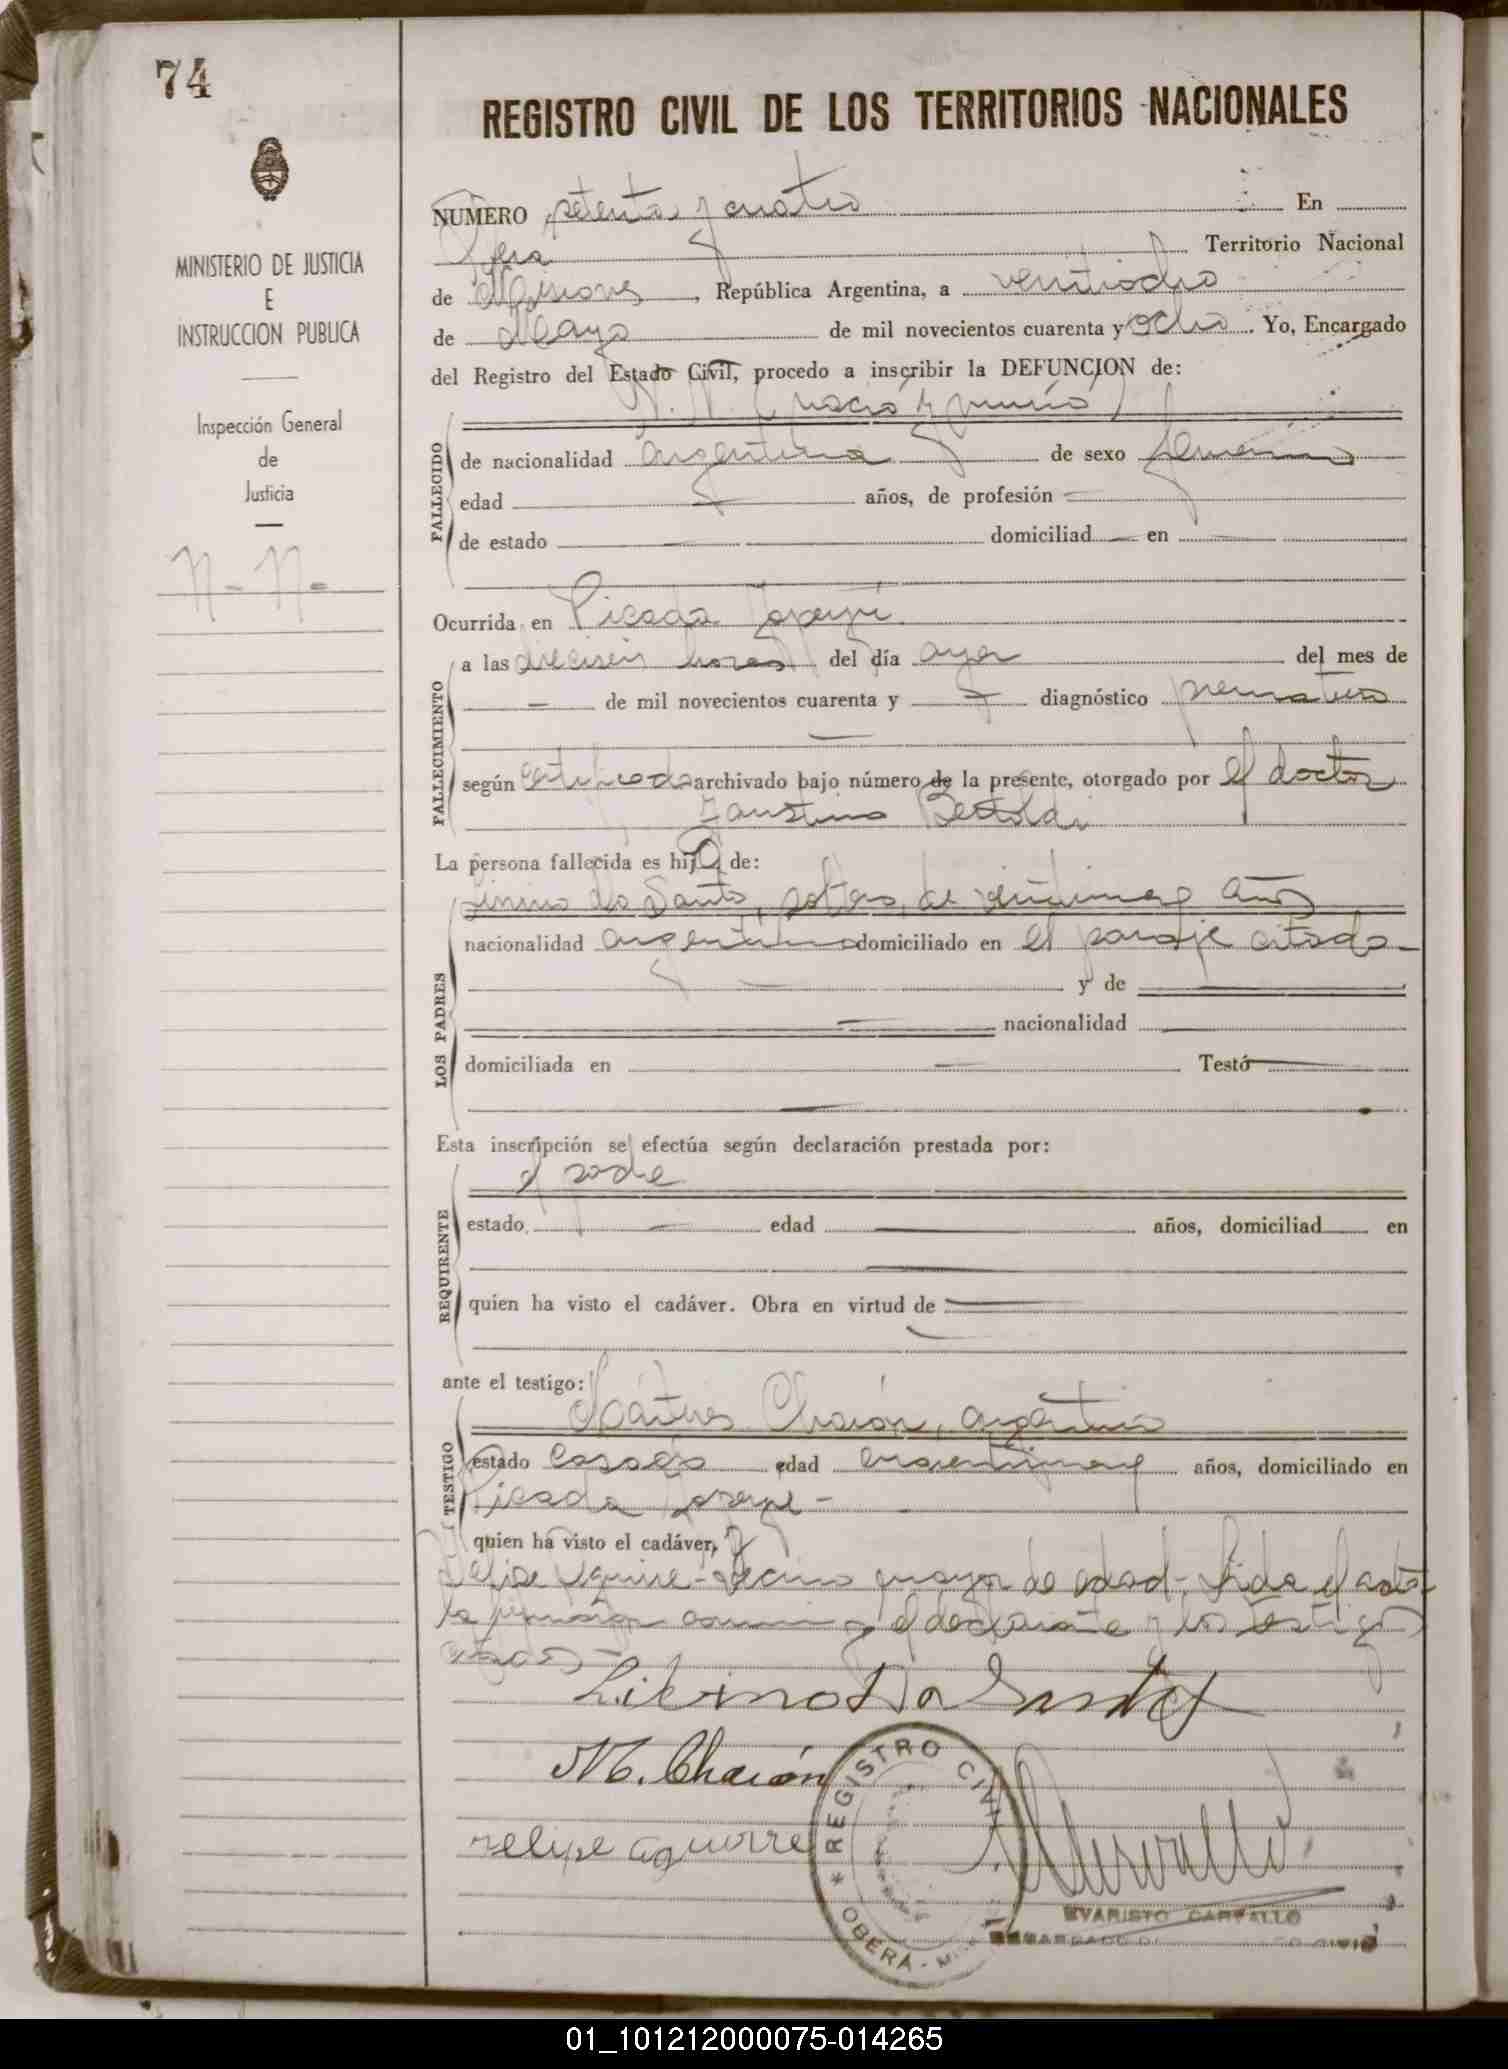 74
REGISTRO CIVIL DE LOS TERRITORIOS NACIONALES
MINISTERIO DE JUSTICIA
E
INSTRUCCION PUBLICA
Inspección General
de
Justicia
N - N -
NUMERO setenta y cuatro En
Territorio Nacional
de Misiones, República Argentina, a veintiocho
de Mayo de mil novecientos cuarenta y ocho. Yo, Encargado
del Registro del Estado Civil, procedo a inscribir la DEFUNCION de:
N. N. (nació y murió)
FALLECIDO
de nacionalidad argentina de sexo femenino
edad años, de profesión
de estado domiciliad en
Ocurrida en Picada
FALLECIMIENTO
a las dieciseis horas del día ayer del mes de
de mil novecientos cuarenta y diagnóstico prematuro
según certificado archivado bajo número de la presente, otorgado por el doctor
Faustino Bertoldi
La persona fallecida es hija de:
LOS PADRES
do Santo, soltero, de años
nacionalidad argentino domiciliado en el paraje citado
y de
nacionalidad
domiciliada en Testó
Esta inscripción se efectúa según declaración prestada por:
el padre
REQUIRENTE
estado edad años, domiciliad en
quien ha visto el cadáver. Obra en virtud de
ante el testigo:
Charón, argentino
TESTIGO
estado casado edad años, domiciliado en
Picada
quien ha visto el cadáver, y
Felipe Aguirre - vecino mayor de edad. Leida el acta
la firman conmigo el declarante y los testigos
citados
Libino Da Santos
M. Charón
felipe aguirre
REGISTRO CIVIL
OBERÁ -
EVARISTO CARVALLO
01_101212000075-014265